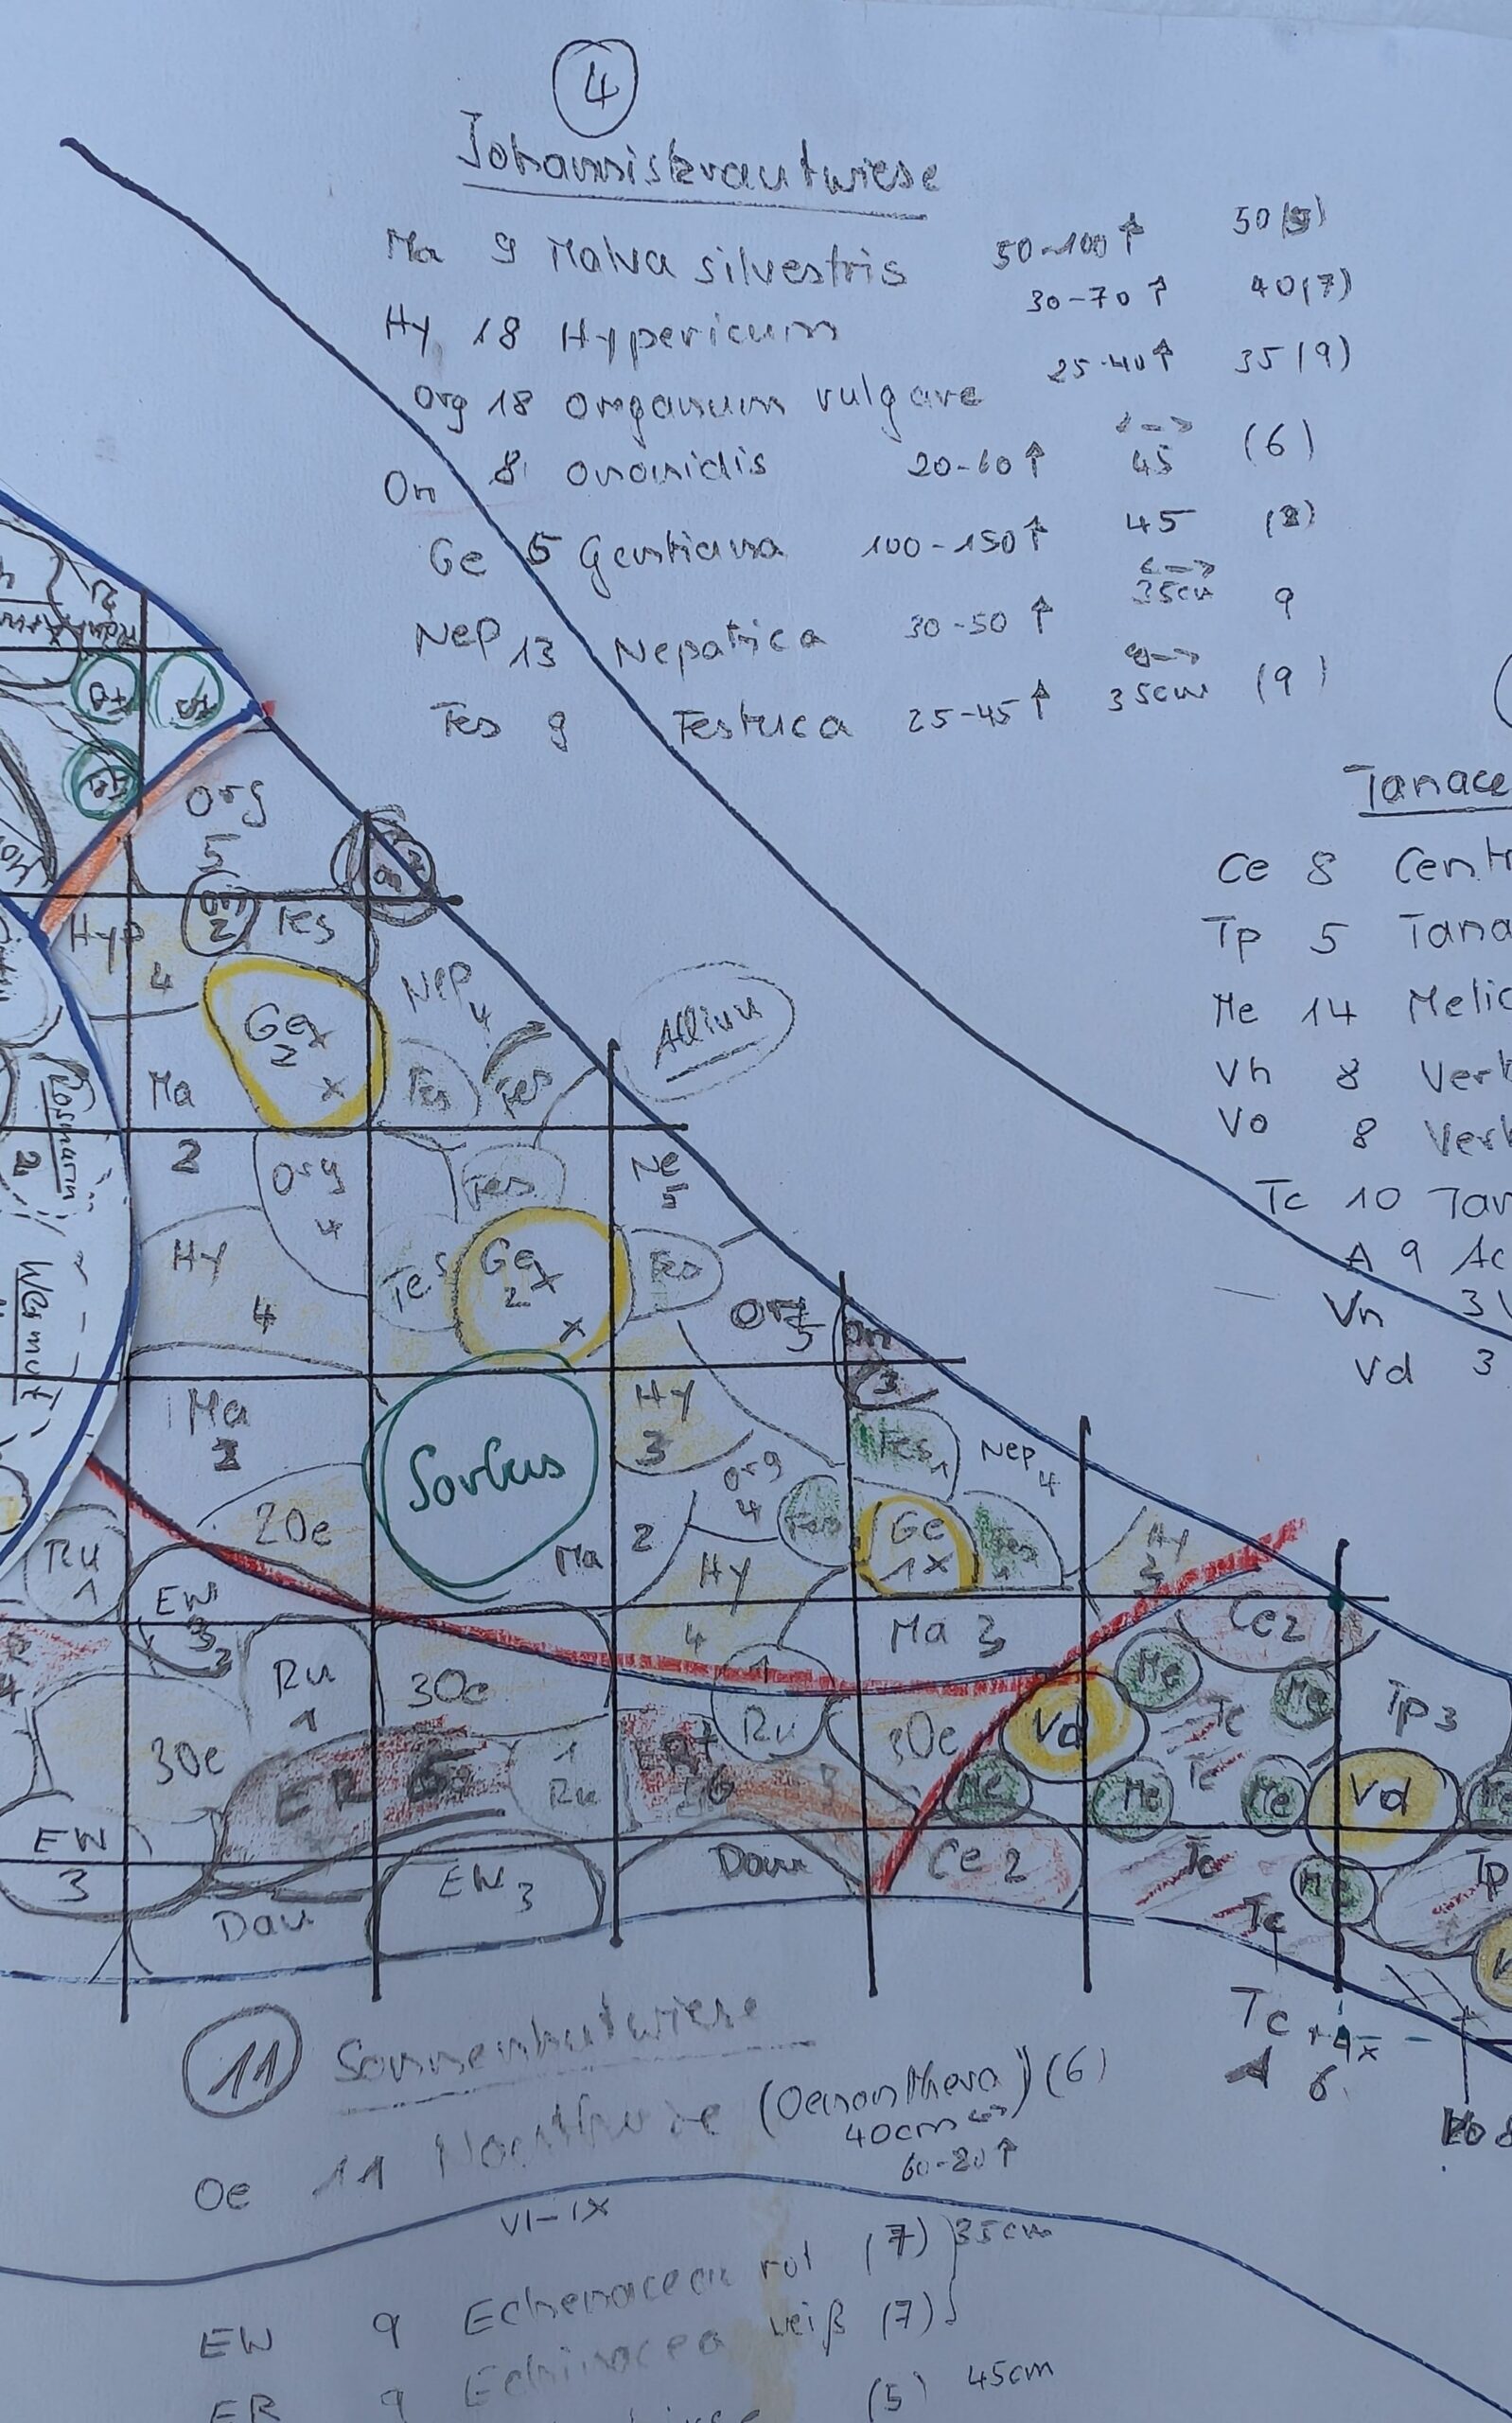 4
Johanniskrautwiese
Ma 9 Malva silvestris 50-100↑ 50(5)
Hy 18 Hypericum 30-70↑ 40(7)
Org 18 Origanum vulgare 25-40↑ 35(9)
On 8 ononidis 20-60↑ 45 (6)
Ge 5 Gentiana 100-150↑ 45
Nep 13 Nepatica 30-50↑ 35cm 9
Fes 9 Festuca 25-45↑ 35cm (9)
Tanace
Ce 8 Cent
Tp 5 Tana
Me 14 Melic
Vh 8 Verk
Vo 8 Verk
Tc 10 Tan
A 9 Ac
Vn 3
Vd 3
Org
5
On
2
Fes
Hyp
4
Nep
4
Ge
2x
x
Allium
Ma
2
Fes
Fes
Rosmarin
2
Org
4
Fes
Ne
5
Hy
4
Fes
Ge
2x
x
Fes
Org
5
On
3
Wermut
Ma
Sorbus
Hy
3
Fes 1
Nep
4
Org
4
2Oe
Ma 2
Fes
Ge
1x
Fes
Hy
Ru
1
EW
3
Hy
4
Ma 3
Ce2
Ru
1
3Oe
1
Ru
3Oe
Vd
Me
Me
Tc
Tp 3
3Oe
ER
1
Ru
6
Me
Me
Tc
Me
Vd
EW
3
Dau
EW 3
Dau
Ce 2
Tc
Me
Tp
Tc
Tc +4x
6
11 Sonnenhutwiese
Oe 11 (Oenanthera) (6)
40cm
60-80↑
VI-IX
EW 9 Echenaceea rot (7) } 35cm
ER 9 Echinacea weiß (7)
(5) 45cm